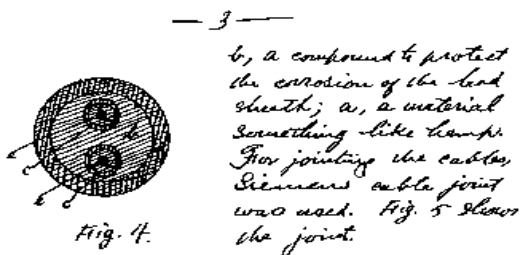 — 3 —
b, a compound to protect
the corrosion of the lead
sheath; a, a material
something like hemp.
For jointing the cables,
Siemens cable joint
was used. Fig. 5 shows
the joint.
Fig. 4.